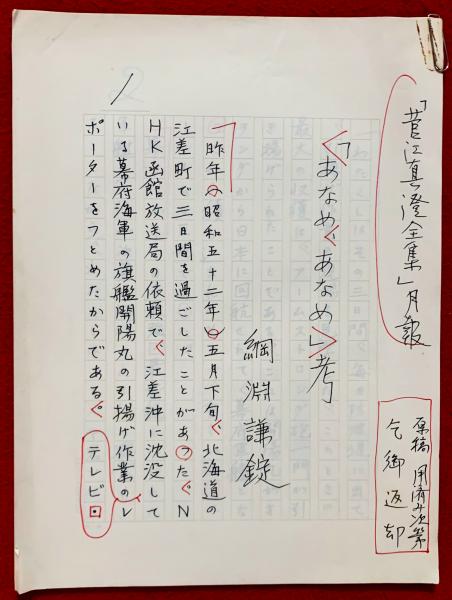 「菅江真澄全集」月報
原稿用済み次第
乞御返却
「あなめあなめ」考
綱淵謙錠
昨年(昭和五十二年)五月下旬、北海道の
江差町で三日間を過ごしたことがあった。N
HK函館放送局の依頼で、江差沖に沈没して
いる幕府海軍の旗艦開陽丸の引揚げ作業のレ
ポーターをつとめたからである。テレビロ
1